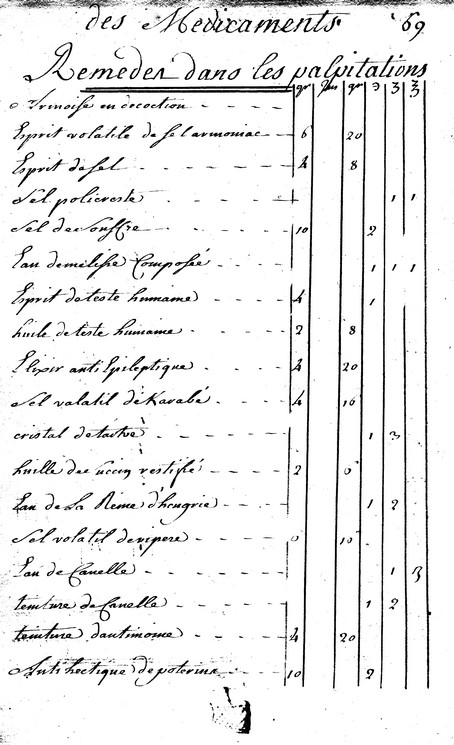 des Medicaments 69
Remedes dans les palpitations
gr gr ℈ ʒ ℥
Armoise en decoction
Esprit volatile de sel armoniac 6 20
Esprit de sel 4 8
Sel policreste 1 1
Sel de Souffre 10 2
Eau de melisse Composée 1 1 1
Esprit de teste humaine 4 1
huile de teste humaine 2 8
Elixir anti Epileptique 4 20
Sel valatil de Karabé 4 16
cristal de tartre 1 3
huille de Succin restifié 2 6
Eau de La Reine d'hongrie 1 2
Sel volatil de vipere 10
Eau de Canelle 1
teinture de Canelle 1 2
teinture dantimoine 4 20
Anti hectique de poterius 10 2